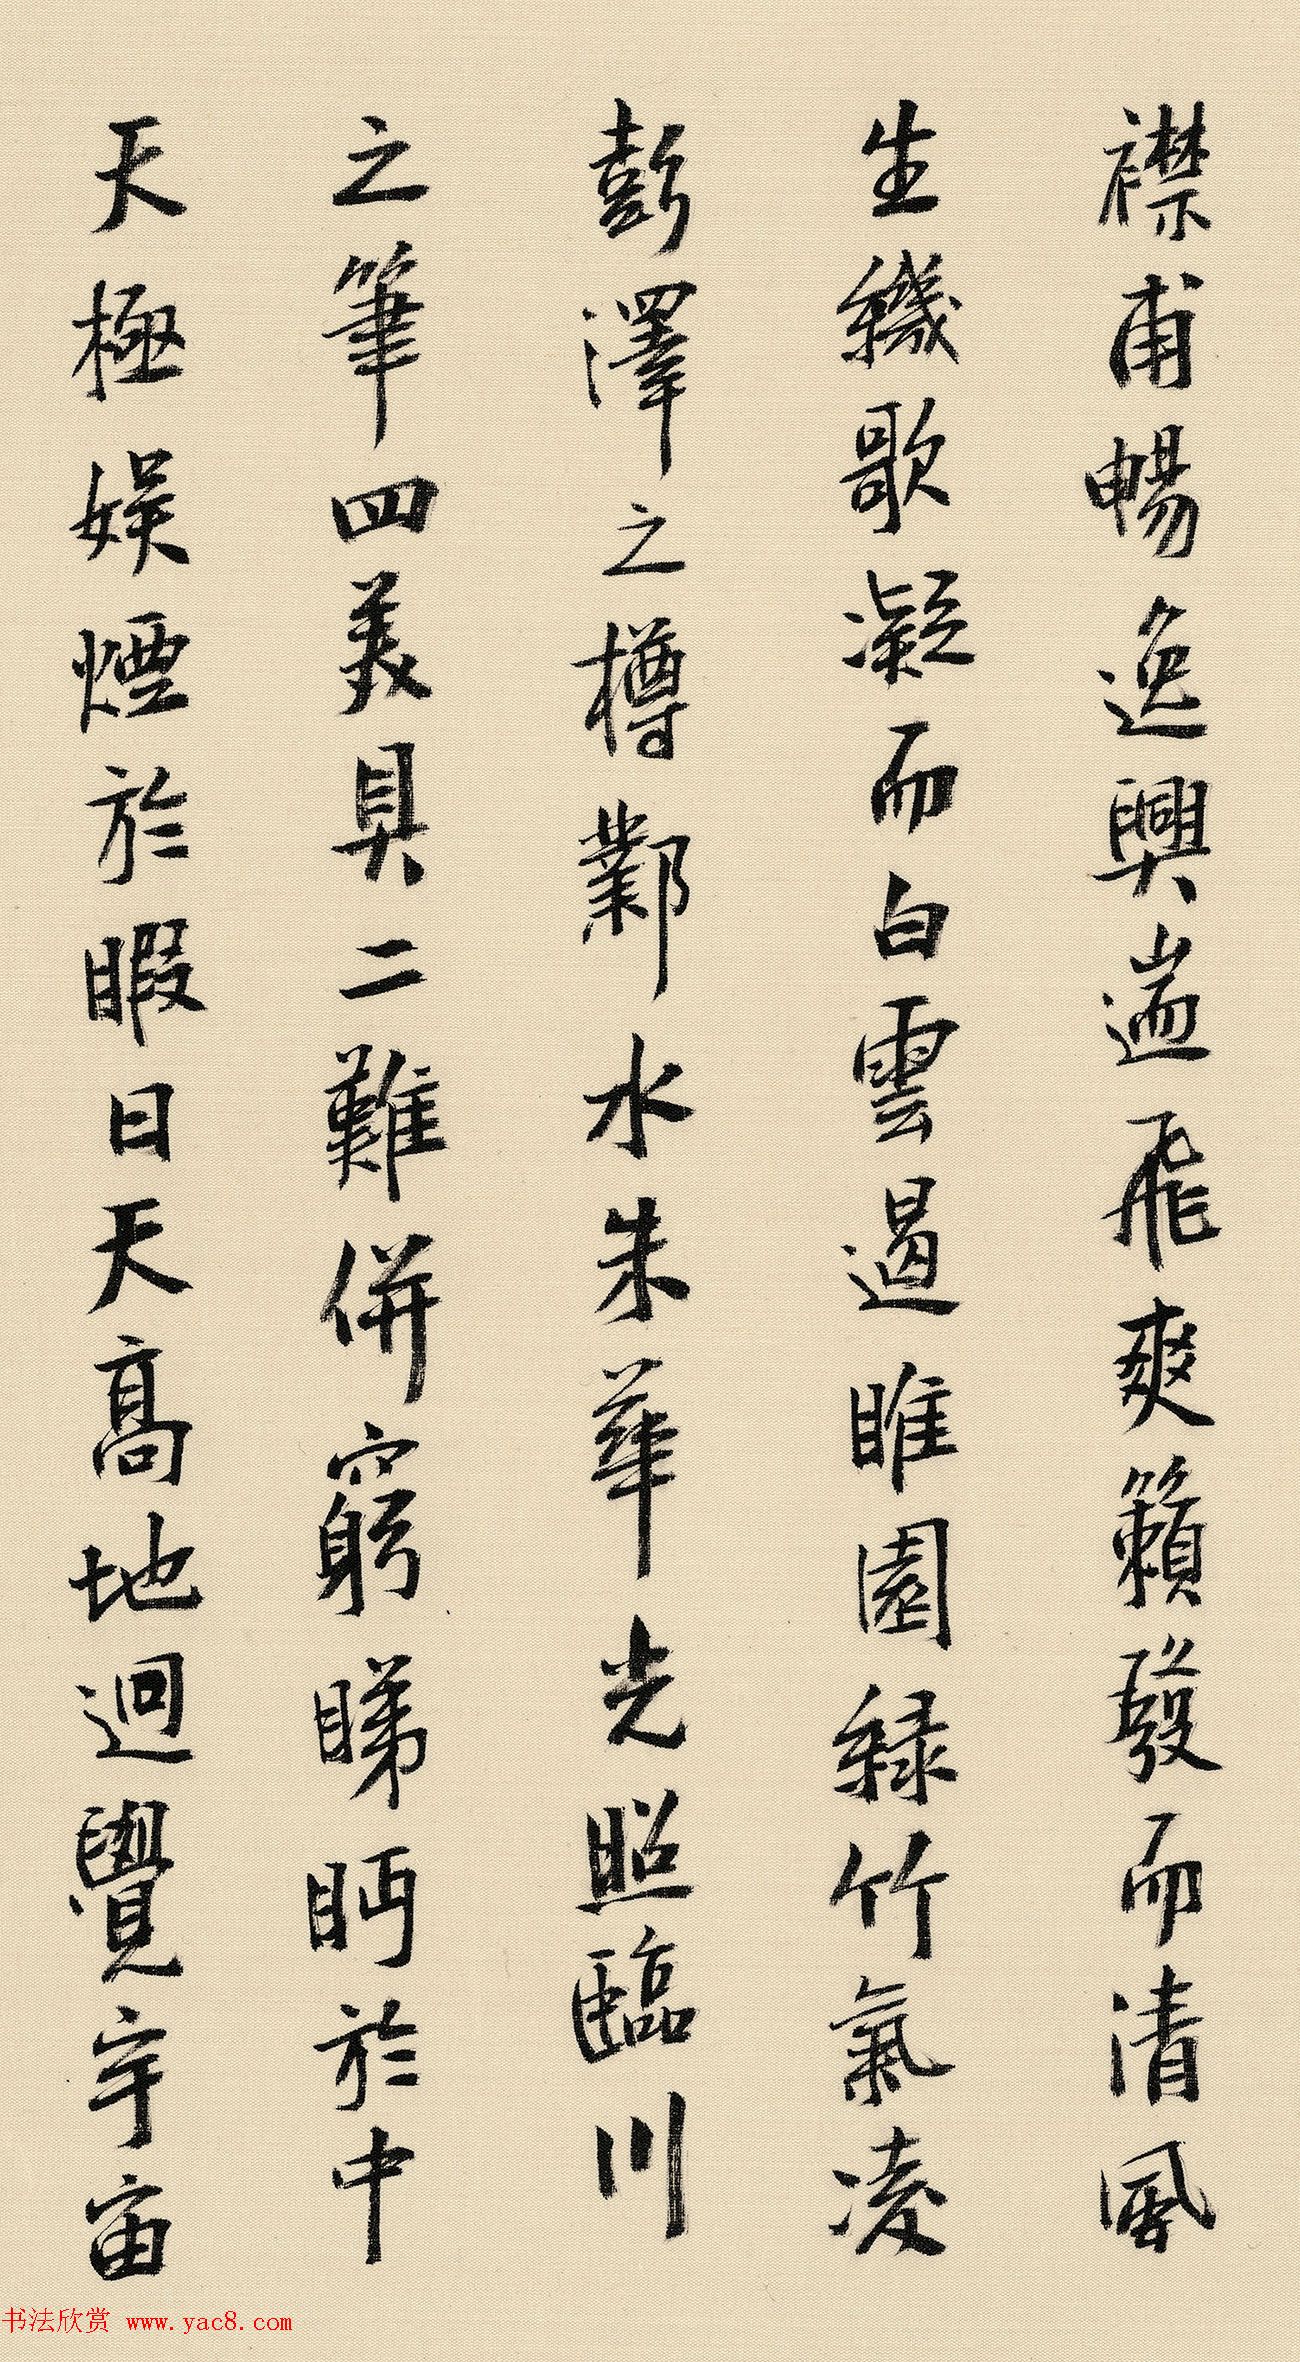 襟甫暢逸興遄飛爽籟發而清風
生纖歌凝而白雲遏睢園綠竹氣凌
彭澤之樽鄴水朱華光照臨川
之筆四美具二難併窮睇眄於中
天極娛煙於暇日天高地迥覺宇宙
书法欣赏 www.yac8.com